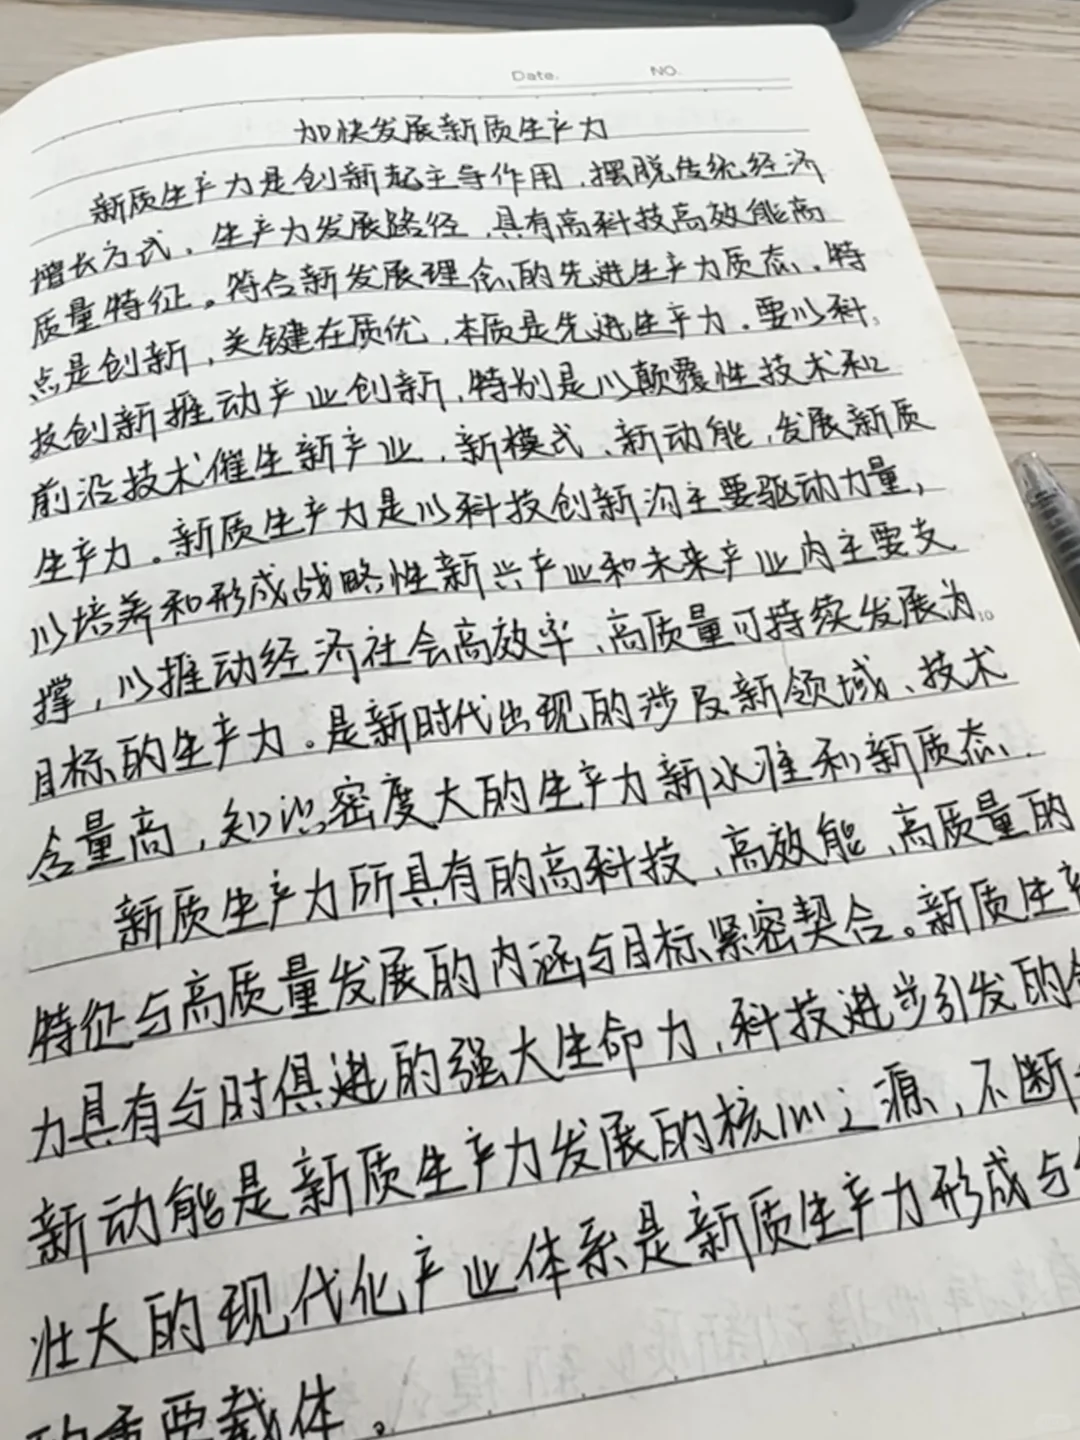 Date. NO.
加快发展新质生产力
新质生产力是创新起主导作用，摆脱传统经济
增长方式、生产力发展路径，具有高科技高效能高
质量特征。符合新发展理念的先进生产力质态。特
点是创新，关键在质优，本质是先进生产力。要以科
技创新推动产业创新，特别是以颠覆性技术和
前沿技术催生新产业，新模式、新动能，发展新质
生产力。新质生产力是以科技创新为主要驱动力量，
以培养和形成战略性新兴产业和未来产业为主要支
撑，以推动经济社会高效率、高质量可持续发展为
目标的生产力。是新时代出现的涉及新领域、技术
含量高，知识密度大的生产力新水准和新质态.
新质生产力所具有的高科技、高效能、高质量的
特征与高质量发展的内涵与目标紧密契合。新质生产
力具有与时俱进的强大生命力，科技进步引发的
新动能是新质生产力发展的核心之源，不断
壮大的现代化产业体系是新质生产力形成与
的重要载体。